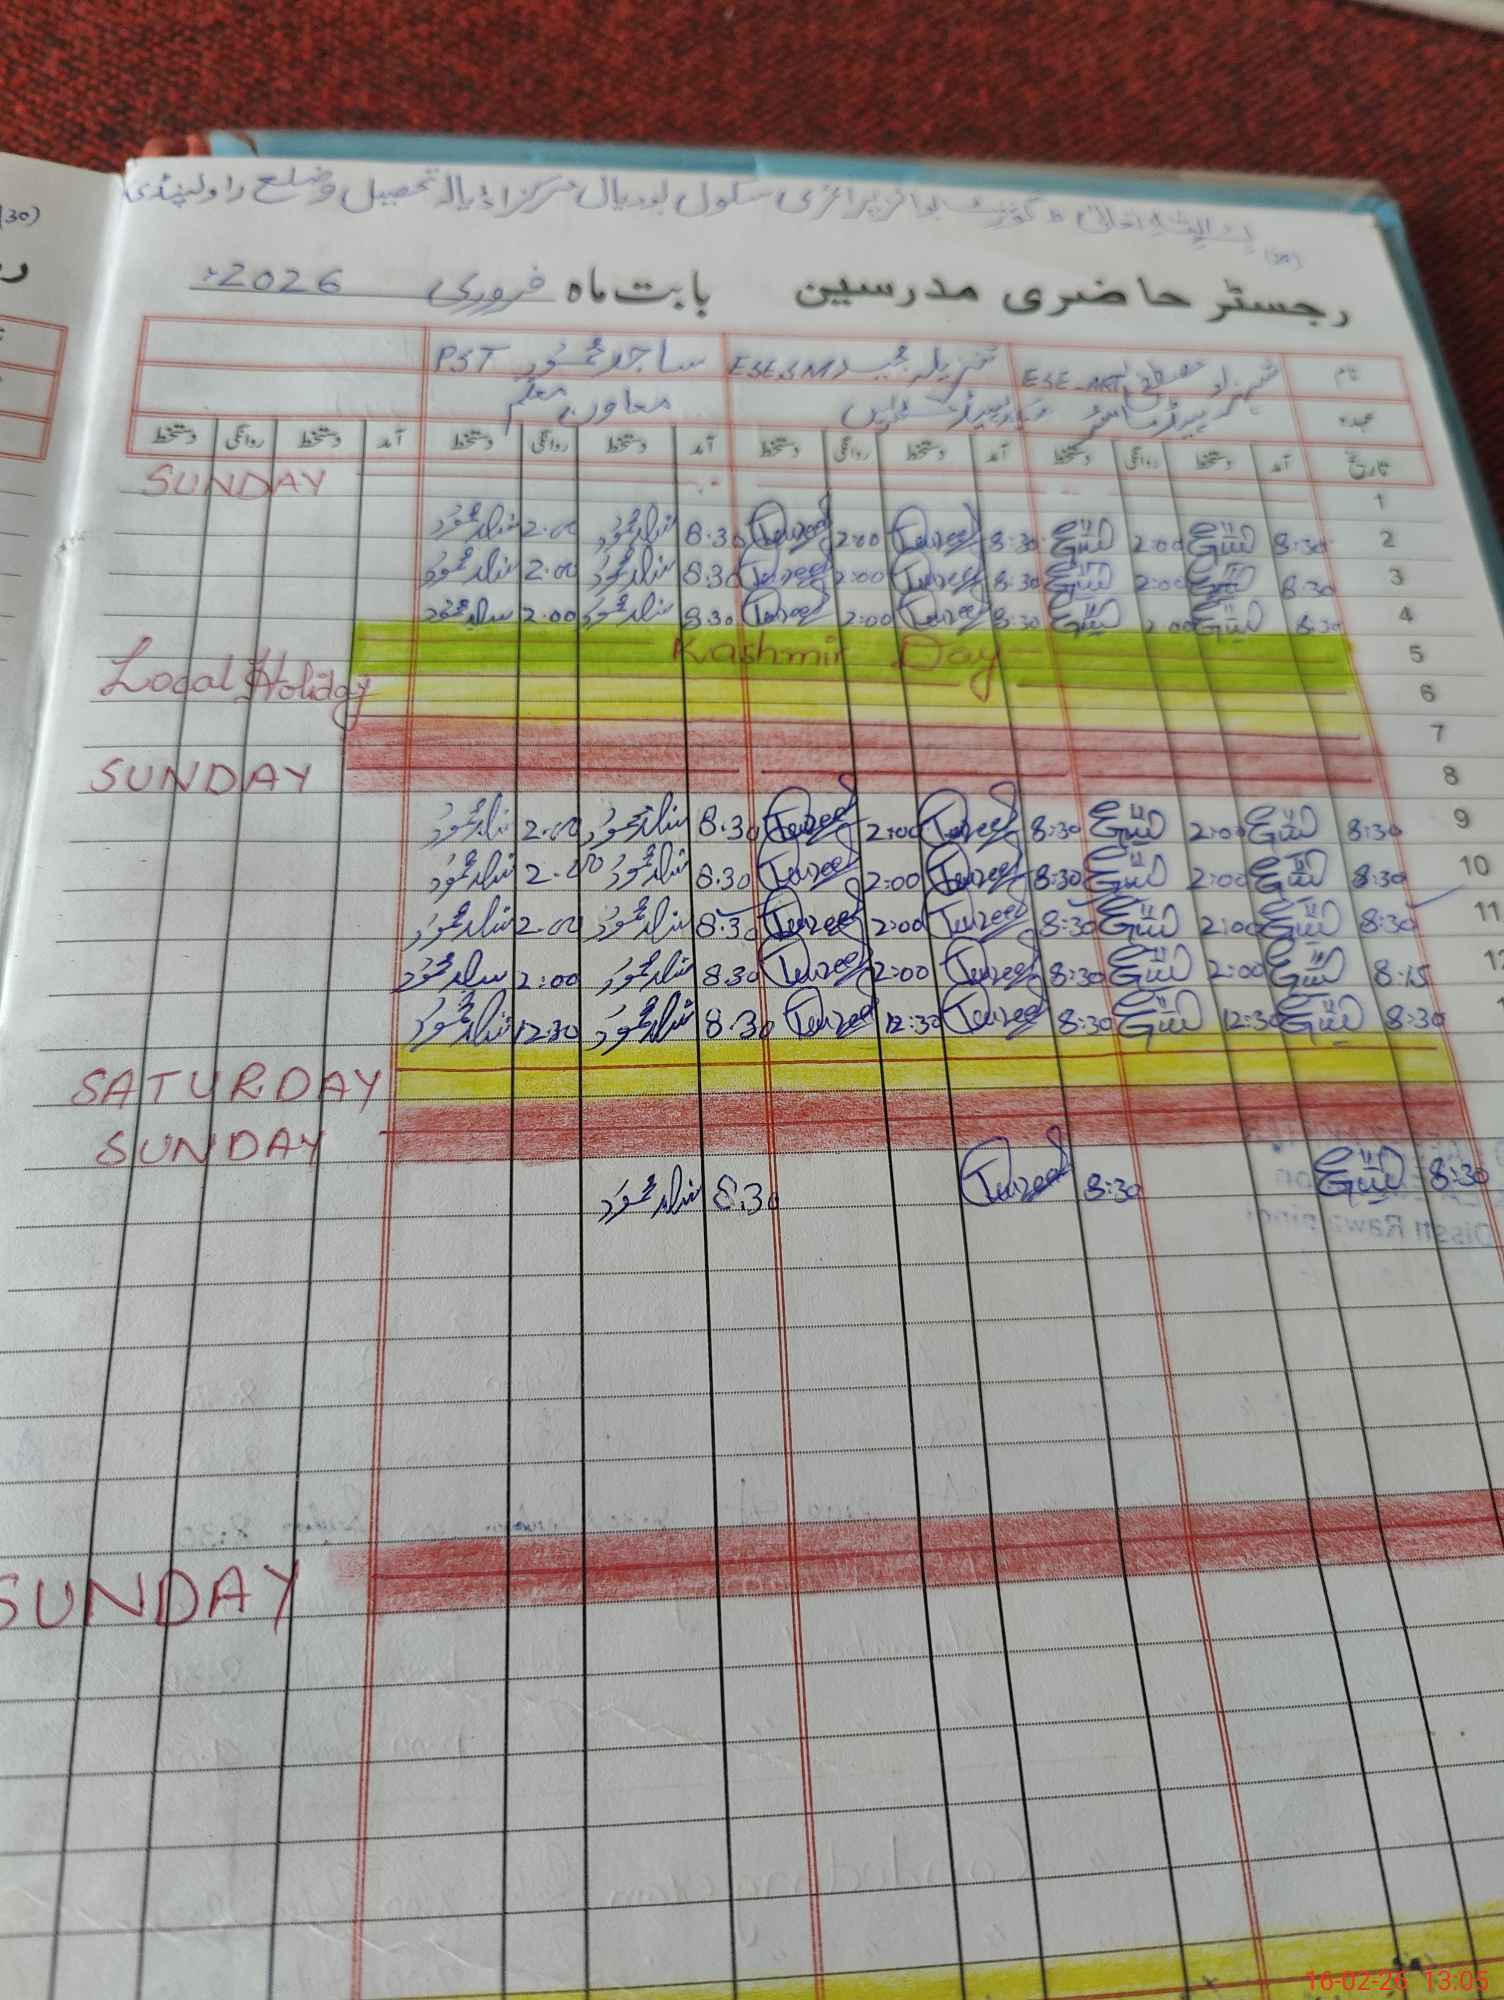 گورنمنٹ بوائز پرائمری سکول لودیال مرکز اڈیالہ تحصیل و ضلع راولپنڈی
رجسٹر حاضری مدرسین بابت ماہ فروری 2026ء
نام شہزاد مصطفیٰ ESE-ART تنزیلہ مجید ESESM ساجد محمود PST
عہدہ ہیڈ ماسٹر ہیڈ مسٹریس معاون معلم
تاریخ آمد دستخط روانگی دستخط آمد دستخط روانگی دستخط آمد دستخط روانگی دستخط آمد دستخط روانگی دستخط
1 SUNDAY
2 8:30 2:00 8:30 Tanzeel 2:00 Tanzeel 8.30 ساجد محمود 2.00 ساجد محمود
3 8:30 2:00 8:30 Tanzeel 2:00 Tanzeel 8.30 ساجد محمود 2.00 ساجد محمود
4 8:30 2:00 8:30 Tanzeel 2:00 Tanzeel 8.30 ساجد محمود 2.00 ساجد محمود
5 Kashmir Day
6 Local Holiday
7
8 SUNDAY
9 8:30 2:00 8:30 Tanzeel 2:00 Tanzeel 8.30 ساجد محمود 2.00 ساجد محمود
10 8:30 2:00 8:30 Tanzeel 2:00 Tanzeel 8.30 ساجد محمود 2.00 ساجد محمود
11 8:30 2:00 8:30 Tanzeel 2:00 Tanzeel 8.30 ساجد محمود 2.00 ساجد محمود
8:15 2:00 8:30 Tanzeel 2:00 Tanzeel 8.30 ساجد محمود 2:00 ساجد محمود
8:30 12:30 8:30 Tanzeel 12:30 Tanzeel 8.30 ساجد محمود 12:30 ساجد محمود
SATURDAY
SUNDAY
8:30 8:30 Tanzeel 8.30 ساجد محمود
SUNDAY
16-02-26 13:05